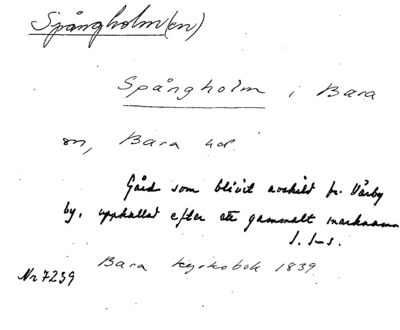 Spångholm(en)
Spångholm i Bara
sn, Bara hd.
Gård som blivit avskild fr. Vårby
by, uppkallat efter ett gammalt marknamn
Bara kyrkobok 1839
Nr 7239